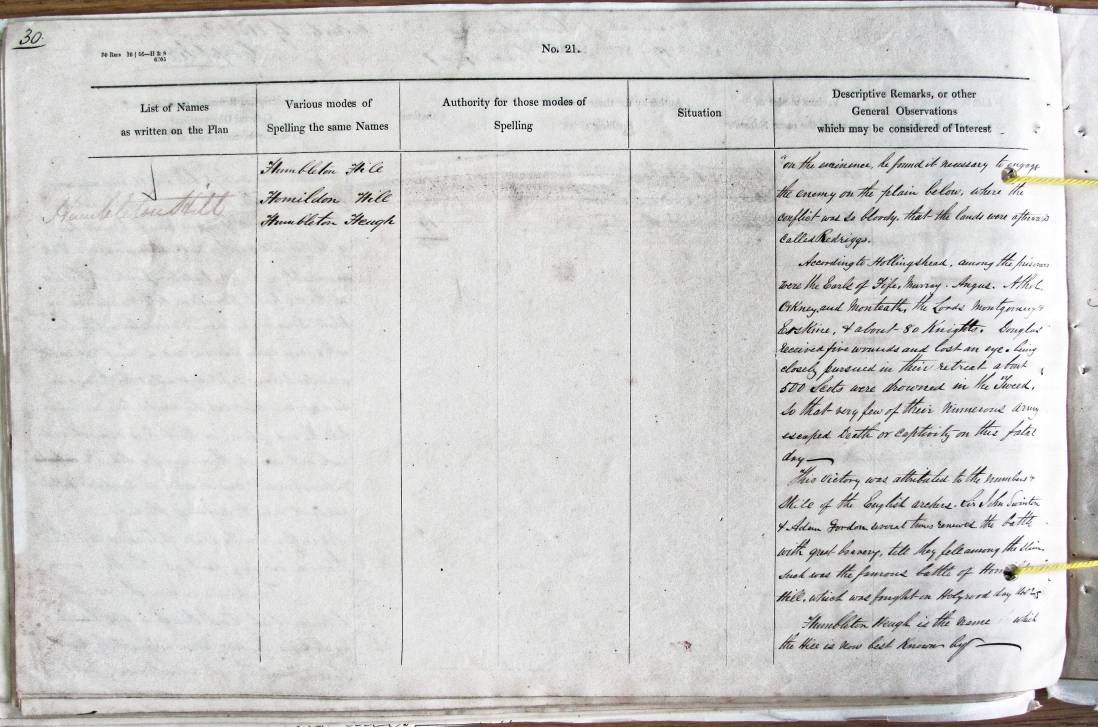 30.
No. 21.
List of Names
as written on the Plan
Various modes of
Spelling the same Names
Authority for those modes of
Spelling
Situation
Descriptive Remarks, or other
General Observations
which may be considered of Interest
Humbleton Hill
Humbleton Hill
Homildon Hill
Humbleton Heugh
"on the eminence, he found it necessary to engage
the enemy on the plain below, where the
conflict was so bloody, that the lands were
called Redriggs.
According to Hollingshead, among the prisoners
were the Earls of Fife, Murray, Angus, Athol
Orkney, and Monteath, the Lords Montgomery &
Erskine, & about 80 Knights. Douglas
received five wounds and lost an eye. being
closely pursued in their retreat about
500 Scots were drowned in the Tweed,
so that very few of their numerous army
escaped Death or Captivity on this fatal
day —
This Victory was attributed to the numbers &
skill of the English archers. Sir John Swinton
& Adam Gordon several times renewed the battle
with great bravery, till they fell among the slain,
such was the famous battle of
Hill, which was fought on Holyrood day
Humbleton Heugh is the name which
the Hill is now best known by —